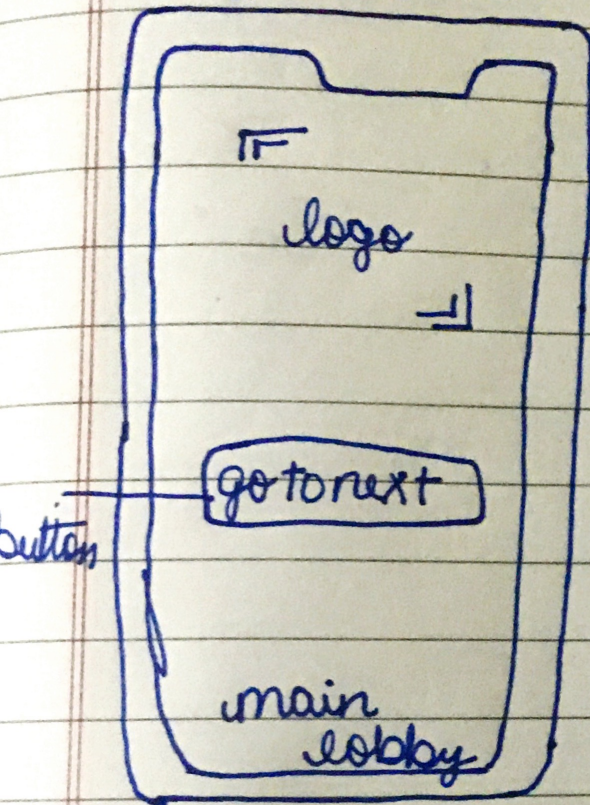 logo
go to next
button
main
lobby